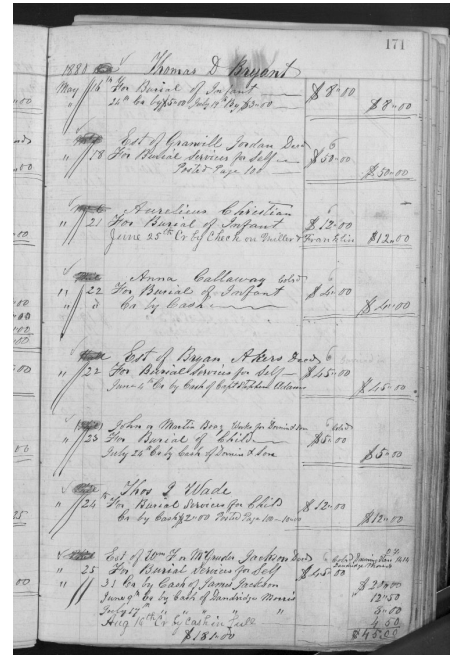 171
1880 Thomas D Bryant
May 16th For Burial of Infant $8.00
24th Cr by $5.00 July 19th By $3.00 $8.00
Est of Granvill Jordan Decd
" 18 For Burial Services for Self $50.00
Posted Page 100 $50.00
Aurelious Christian
" 21 For Burial of Infant $12.00
June 25th Cr by Check on Miller & Franklin $12.00
Anna Callaway Cold
" 22 For Burial of Infant $4.00
" " Cr by Cash $4.00
Est of Bryan Akers Decd
" 22 For Burial Services for Self $45.00
June 4th Cr by Cash of Capt Stephen Adams $45.00
John or Martin Works for
" 23 For Burial of Child $5.00
July 26th Cr by Cash of & Son $5.00
Thos J Wade
" 24th For Burial Services for Child $12.00
Cr by Cash $2.00 Posted Page 100 10.00 $12.00
Est of Wm F Jackson Decd
" 25 For Burial Services for Self $45.00
" 31 Cr by Cash of James Jackson
June 9th Cr by Cash of Dandridge Morris 12.50
July 17th " " " " 5.00
Aug 16th Cr By Cash in full
$181.00 $45.00